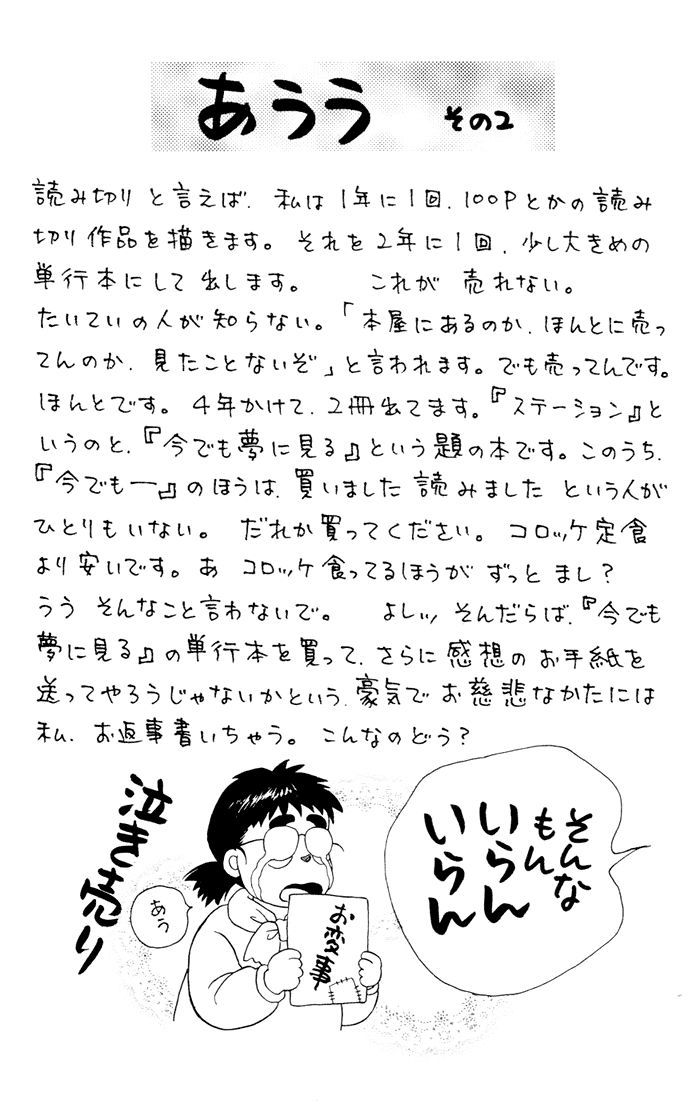 あうう その2
読み切りと言えば、私は1年に1回、100Pとかの読み
切り作品を描きます。それを2年に1回、少し大きめの
単行本にして出します。 これが 売れない。
たいていの人が知らない。「本屋にあるのか、ほんとに売っ
てんのか、見たことないぞ」と言われます。でも売ってんです。
ほんとです。4年かけて、2冊出てます。『ステーション』と
いうのと、『今でも夢に見る』という題の本です。このうち、
『今でも―』のほうは、買いました 読みました という人が
ひとりもいない。 だれか買ってください。コロッケ定食
より安いです。あ コロッケ食ってるほうが ずっと まし?
うう そんなこと言わないで。 よしッ、そんだらば、『今でも
夢に見る』の単行本を買って、さらに感想のお手紙を
送ってやろうじゃないかという、豪気でお慈悲なかたには
私、お返事書いちゃう。こんなのどう?
そんな
もん
いらん
いらん
お変事
あう
泣き売り